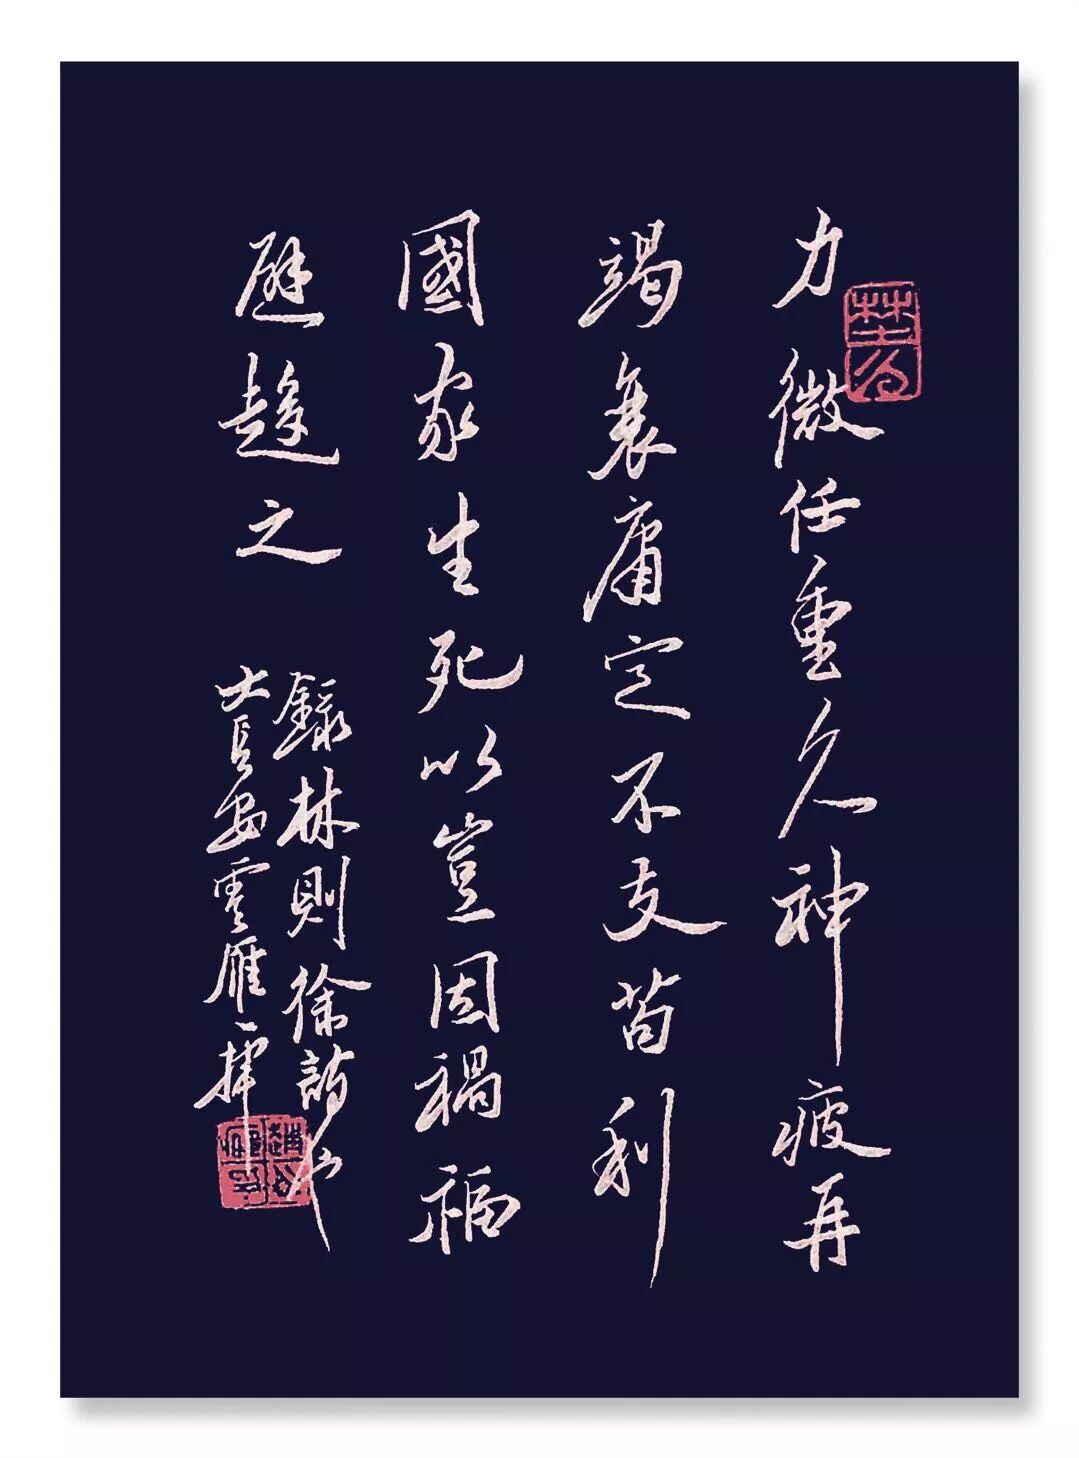 力微任重久神疲再
竭衰庸定不支苟利
國家生死以豈因禍福
避趨之
錄林則徐詩
安雲雁